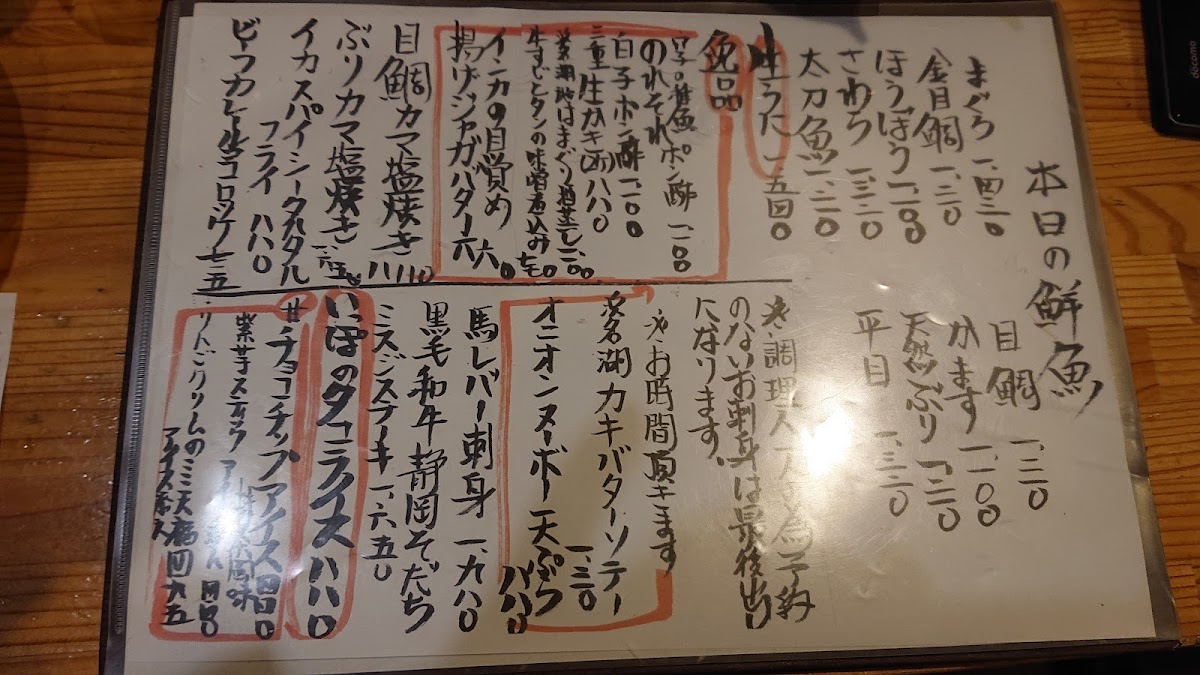 本日の鮮魚
まぐろ 一、四三〇
金目鯛 一、三二〇
ほうぼう 一、一〇〇
さわら 一、三二〇
太刀魚 一、三二〇
生うに 一五四〇
目鯛 一、三二〇
かます 一、一〇〇
天然ぶり 一、三二〇
平目 一、三二〇
のないお刺身は最後出し
になります。
逸品
のれそれポン酢 一、一〇〇
白子ポン酢 一、一〇〇
三重生かき(2ヶ)八八〇
牛すじとタンの味噌煮込み 七七〇
インカの目覚め
揚げジャガバター 六六〇
目鯛カマ塩焼き
ぶりカマ塩焼き
イカスパイシータルタル
フライ 八八〇
ビーフカレーコロッケ 七一五
※お時間頂きます
浜名湖カキバターソテー
一、三二〇
オニオンヌーボー天ぷら
八八〇
馬レバー刺身 一、九八〇
黒毛和牛静岡そだち
ミスジステーキ 一、六五〇
いっぽのタコライス 八八〇
甘 チョコチップアイス 四四〇
紫芋スティック
アイス添え